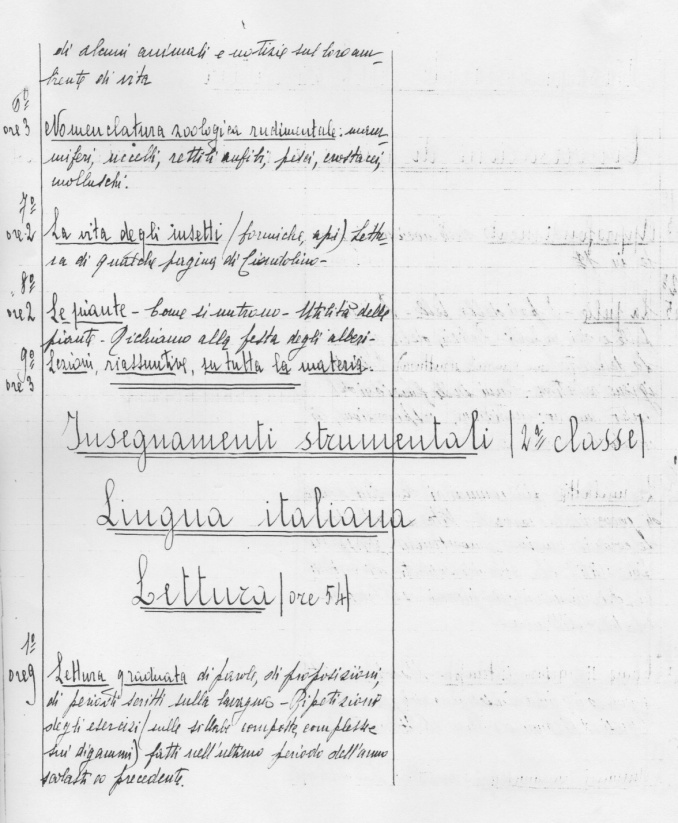 di alcuni animali e notizie sul loro am-
biente di vita
6º
ore 3 Nomenclatura zoologica rudimentale: mam-
miferi, uccelli, rettili anfibi, pesci, crostacei,
molluschi.
7º
ore 2 La vita degli insetti (formiche, api) Lettu-
ra di qualche pagina di Ciondolino-
8º
ore 2 Le piante - Come si nutrono - Utilità delle
piante - Richiamo alla festa degli alberi-
9º
ore 3 Lezioni, riassuntive, su tutta la materia.
Insegnamenti strumentali (2ª classe)
Lingua italiana
Lettura (ore 54)
1º
ore 9 Lettura graduata di parole, di proposizioni,
di periodi scritti sulla lavagna - Ripetizioni
degli esercizi (sulle sillabe composte, complesse
sui digammi) fatti nell'ultimo periodo dell'anno
scolastico precedente.